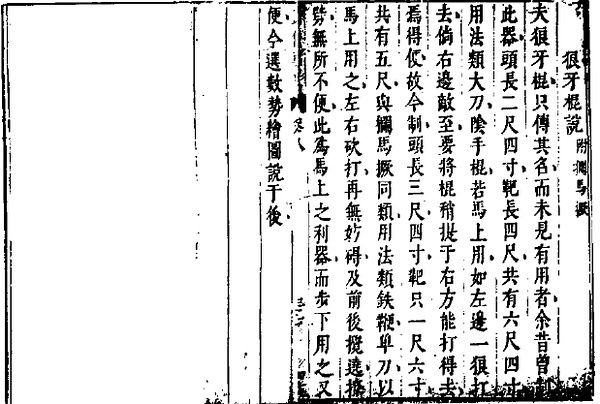 狼牙棍說附攔馬橛
夫狼牙棍只傳其名而未見有用者余昔曾制
此器頭長二尺四寸靶長四尺共有六尺四寸
用法類大刀陰手棍若馬上用如左邊一狼打
去倘右邊敵至要將棍稍提于右方能打得去
焉得便故今制頭長三尺四寸靶只一尺六寸
共有五尺與攔馬橛同類用法類鉄鞭単刀以
馬上用之左右砍打再無妨碍及前後攪遶擋
勞無所不便此為馬上之利器而步下用之又
便今選数勢繪圖説于後
卷八